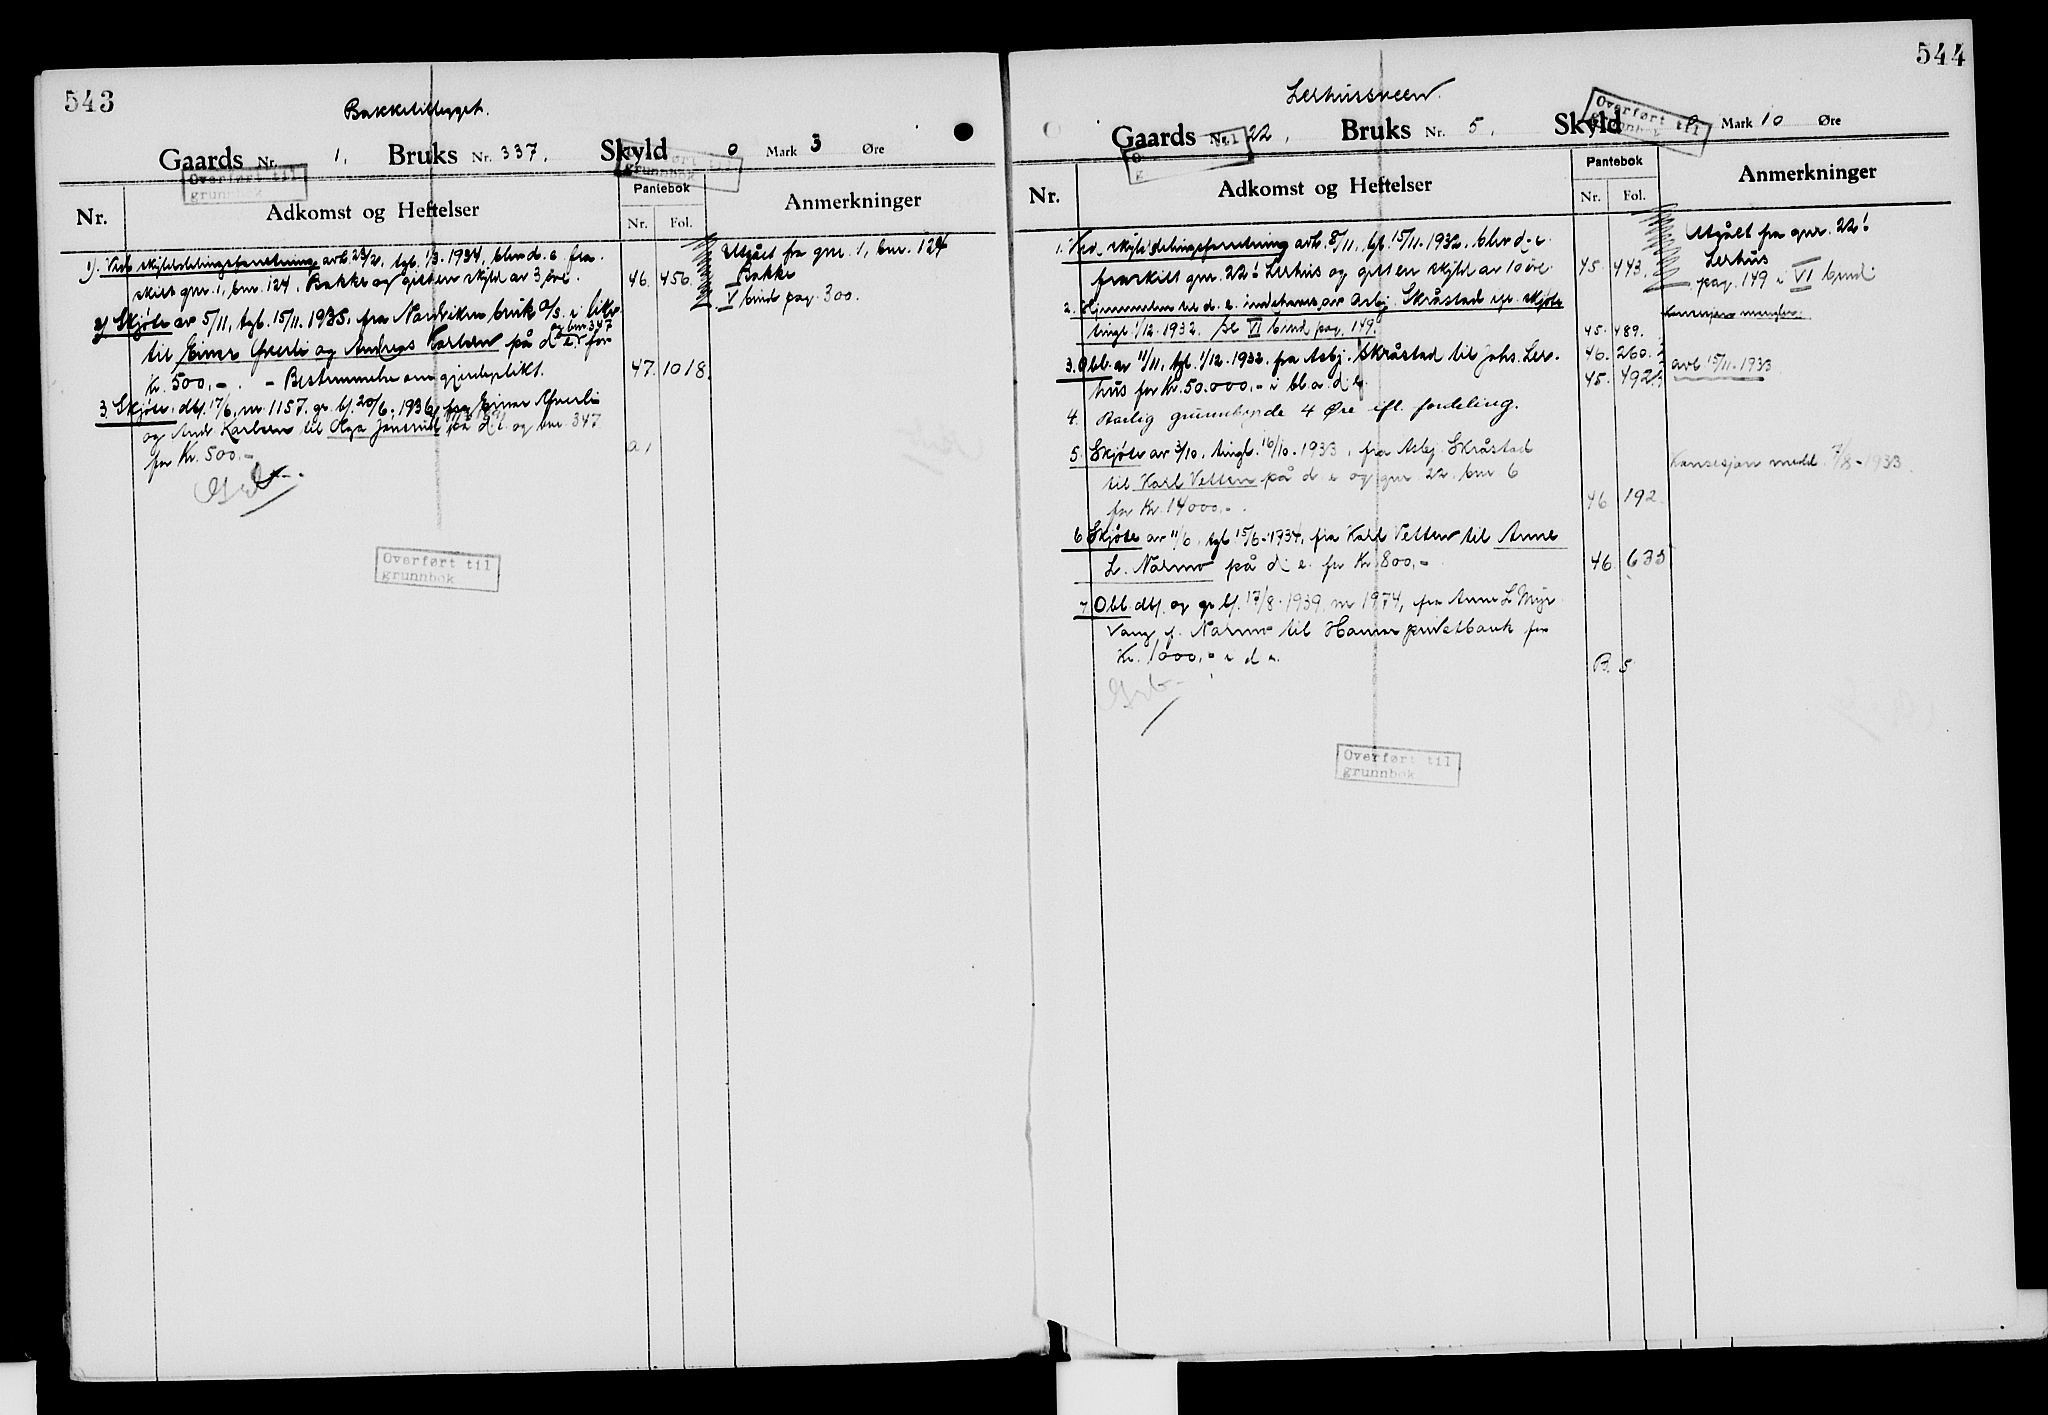 543
Bakketillegget.
Gaards Nr. 1. Bruks Nr. 337. Skyld 0 Mark 3 Øre
Overført til
grunnbok
Overført til
grunnbok
Nr. Adkomst og Heftelser Pantebok Anmerkninger
Nr. Fol.
1). Ved skylddelingsforretning avh. 23/2, tgl. 1/3-1934, blev d. e. fra-
skilt gnr. 1, bnr. 124. Bakke og gitt en skyld av 3 øre. 46. 456.
Utgått fra gnr. 1, bnr. 124
Bakke
V bind pag. 300.
2) Skjøte av 5/11, tgl. 15/11-1935, fra Narvikens bruk A/S. i likv.
til Einar og Andreas Karlsen på d. e. og bnr 347 for
Kr. 500,-. - Bestemmelse om gjerdeplikt. 47. 1018.
3. Skjøte dat. 17/6, nr. 1157. gr. bf. 20/6, 1936, fra Einar
og Andr Karlsen til på d. e. og bnr. 347
for Kr. 500.- a 1
Overført til
grunnbok
544
Lerhussveen.
Gaards Nr. 22, Bruks Nr. 5, Skyld 0 Mark 10 Øre
Overført til
grunnbok
Nr. Adkomst og Heftelser Pantebok Anmerkninger
Nr. Fol.
1. Ved skylddelingsforretning avh. 8/11, tgl. 15/11-1932, blev d. e.
fraskilt gnr. 22/1 Lerhus og gitt en skyld av 10 øre. 45. 443.
Utgått fra gnr. 22/1
Lerhus
pag. 149 i VI bind.
2. Hjemmelen til d. e. indehaves av Asbj. Skråstad efr. skjøte
tingl. 1/12-1932. Se VI bind pag. 149. 45. 489.
Konsesjon mangler.
3. Obl. av 11/11, tgl. 1/12-1932. fra Asbj. Skråstad til Johs. Ler-
hus for Kr. 50.000,- i bl. a. d. e. 45. 492
46. 260.
avl 15/11-1933
4. Aarlig grunnbyrde 4 Øre efl. fordeling.
5. Skjøte av 3/10, tingl. 16/10-1933, fra Asbj. Skråstad
til Karl Velten på d. e. og gnr. 22. bnr 6
for Kr. 14000.-. 46 192
Konsesjon medd. 7/8-1933.
6 Skjøte av 11/6, tgl 15/6-1934, fra Karl Velten til Anne
L. Narmo på d. e. for Kr 800,- 46 635
7. Obl. dat. og gr. bf. 17/8-1939, nr 1974, fra Anne L Myr-
vang, f. Narmo til Hamar privatbank for
Kr. 1000,- i d. e. B. 5
Overført til
grunnbok